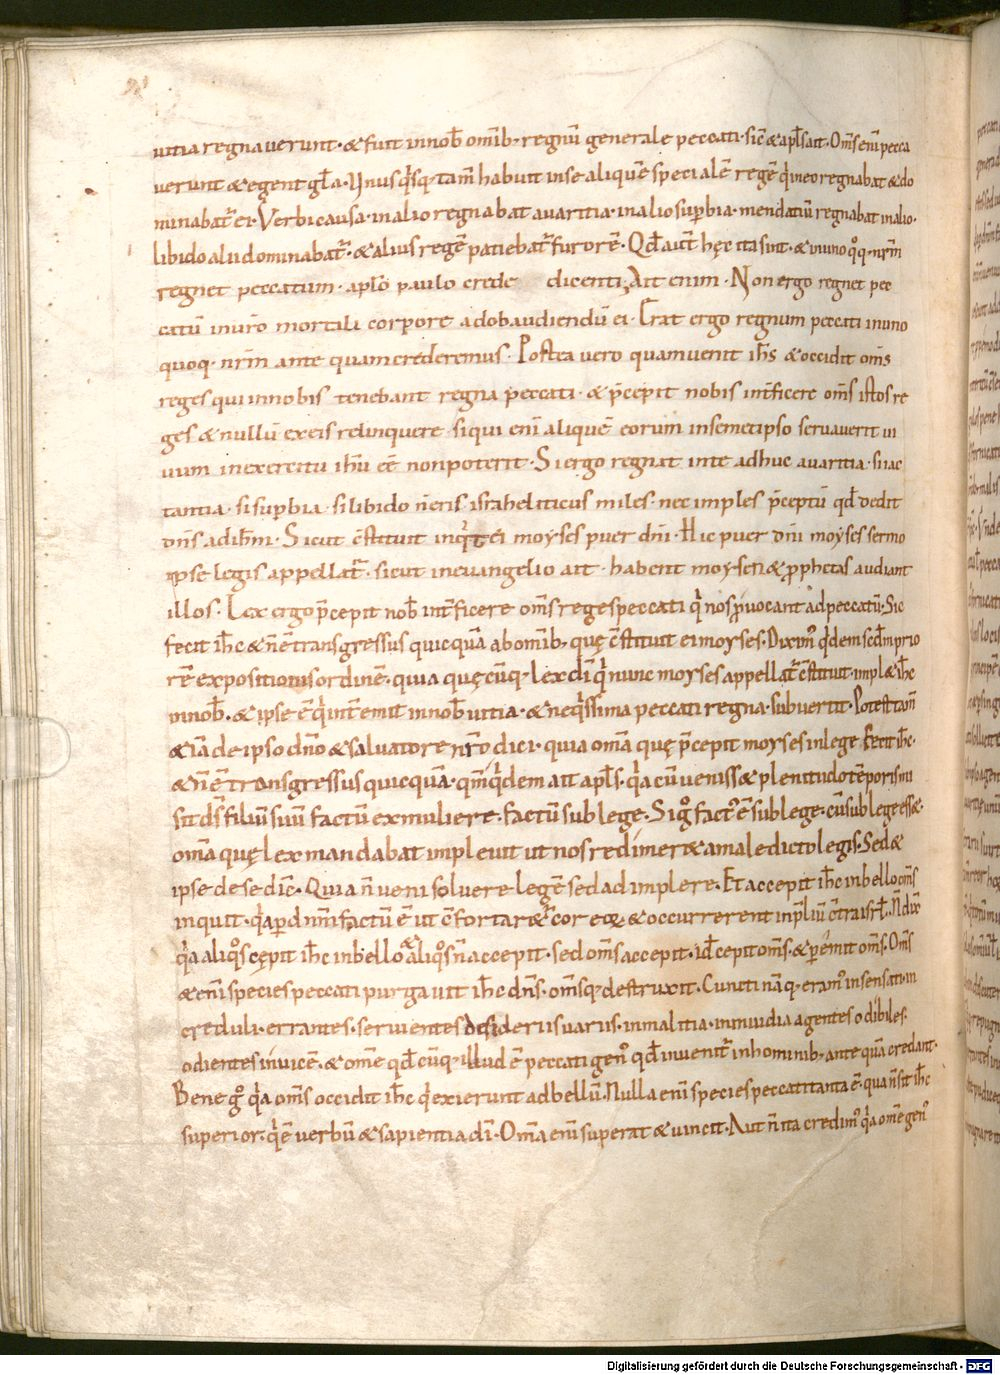 uitia regnauerunt · & fuit in nob̄ omīb; regnū generale peccati · sic̄ & apl̄s ait · Om̄s enī pecca
uerunt & egent gl̄a · Unusq́sq; tam̄ habuit in se aliquē specialē regē q́ in eo regnabat & do
minabat̄ ei · Verbi causa · in alio regnabat auaritia · in alio supbia · mendatiū regnabat in alio ·
libido alii dominabat̄ · & alius regē patiebat̄ furorē · Qd̄ aut̄ hęc ita sint · & in uno q̊q; nr̄m
regnet peccatum · aplō paulo crede dicenti, Ait enim · Non ergo regnet pec
catū in ur̄o mortali corpore ad obaudiendū ei · Erat ergo regnum peccati in uno
quoq; nr̄m ante quam crederemus · Postea uero quam uenit ih̄s & occidit om̄s
reges qui in nobis tenebant regna peccati · & p̄cepit nobis int̄ficere om̄s istos re
ges & nullū ex eis relinquere · si qui enī aliquē eorum in semetipso seruauerit ui
uum in exercitu ih̄u eē non poterit · Si ergo regnat in te adhuc auaritia · si iac
tantia · si supbia · si libido n̄ eris israheliticus miles · nec imples p̄ceptū qd̄ dedit
dn̄s ad ih̄m · Sicut c̄stituit inq́t ei moyses puer dn̄i · Hic puer dn̄i moyses sermo
ipse legis appellat̄ · sicut in euangelio ait · habent moysen & prophetas audiant
illos · Lex ergo p̄cepit nob̄ int̄ficere om̄s reges peccati q́ nos puocant ad peccatū · Sic
fecit ih̄c & n̄ ē transgressus quicquā ab omīb; quę c̄stituit ei moyses · Diximꝰ q́dem sc̄dm prio
rē expositionis ordinē · quia quęcūq; lex dī q́ nunc moyses appellat̄ c̄stituit · impl& ih̄c
in nob̄ · & ipse ē q́ int̄emit in nob̄ uitia · & neq́ssima peccati regna subuertit · Potest tam̄
& iā de ipso dn̄o & saluatore nr̄o dici · quia om̄a quę p̄cepit moyses in lege fecit ih̄c ·
& n̄ ē transgressus quicquā · qm̄ q́dem ait apl̄s · q́a cū uenisset plenitudo tēporis mi
sit ds̄ filiū suū factū ex muliere · factū sub lege · Si g̊ factꝰ ē sub lege · cū sub lege ess& ·
om̄a quę lex mandabat impleuit ut nos redimer& a maledicto legis · Sed &
ipse de se dic̄ · Quia n̄ ueni soluere legē sed adimplere · Et accepit ih̄c in bello om̄s
inquit · q́a p dn̄m factū ē ut c̄fortar&̄ cor eoꝝ & occurrerent in p̄liū c̄tra isrł · N̄ dix̄
q́a aliq̊s cępit ih̄c in bello & aliq̊s n̄ accepit · sed om̄s accepit · id̄ cepit om̄s · & pēmit om̄s · Om̄s
& enī species peccati purgauit ih̄c dn̄s · om̄sq; destruxit · Cuncti nāq; eramꝰ insensati · in
creduli · errantes · seruientes desideriis uariis · in malitia · in inuidia agentes odibiles ·
odientes inuicē · & om̄e qd̄cūq; illud ē peccati genꝰ qd̄ inuenit̄ in hominib; ante quā credant ·
Bene g̊ q́a om̄s occidit ih̄c q́ exierunt ad bellū · Nulla enī species peccati tanta ē · qua n̄ sit ih̄c
superior · q́ ē uerbū & sapientia dī · Om̄a enī superat & uincit · Aut n̄ ita credimꝰ q́a om̄e genꝰ
Digitalisierung gefördert durch die Deutsche Forschungsgemeinschaft - DFG